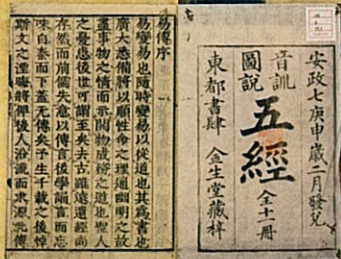 安政七庚申歳二月發兌
音訓
圖說
五經
全十一冊
東都書肆 金生堂藏梓
易傳序
易變易也隨時變易以從道也其為書也
廣大悉備將以順性命之理通幽明之故
盡事物之情而示開物成務之道也聖人
之憂患後世可謂至矣去古雖遠遺經尚
存然而前儒失意以傳言後學誦言而忘
味自秦而下蓋無傳矣予生千載之後悼
斯文之湮晦將俾後人沿流而求源此傳